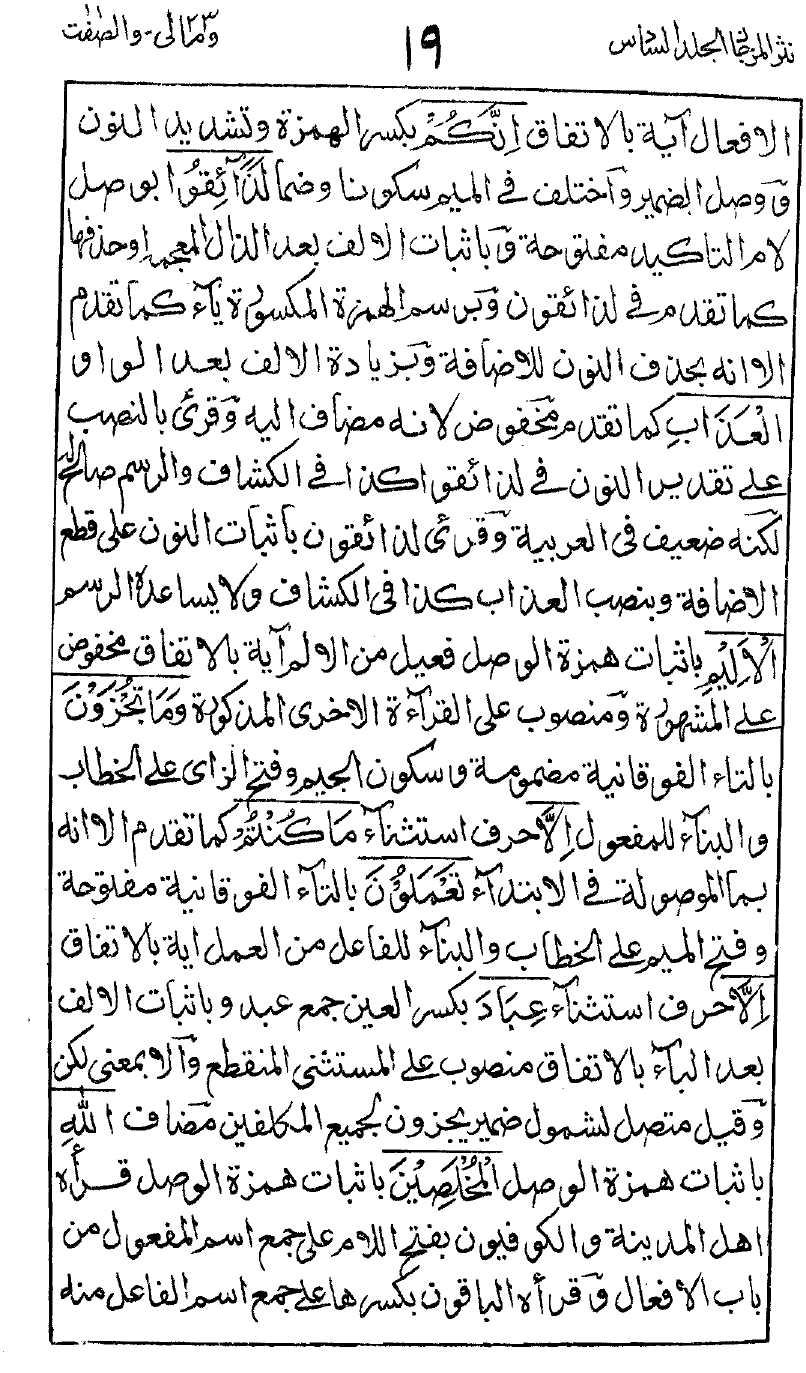 نثر المرجان الجلد السادس ١٩ ومالى ٢٣ - والصفت
الافعال آية بالاتفاق اِنَّكُمْ بكسر الهمزة وتشديد النون
ووصل الضمير واختلف في الميم سكونا وضما لَذَآئِقُوا بوصل
لام التاكيد مفتوحة وباثبات الالف بعد الذال المعجمة اوحذفها
كما تقدم في لذائقون وبرسم الهمزة المكسورة ياء كما تقدم
الا انه بحذف النون للاضافة وبزيادة الالف بعد الواو
الْعَذَابِ كما تقدم مخفوض لانه مضاف اليه وقرئ بالنصب
على تقدير النون في لذائقوا كذا في الكشاف والرسم صالح له
لكنه ضعيف في العربية وقرئ لذائقون باثبات النون على قطع
الاضافة وبنصب العذاب كذا في الكشاف ولا يساعده الرسم
الْاَلِيْمِ باثبات همزة الوصل فعيل من الالم آية بالاتفاق مخفوض
على المشهورة ومنصوب على القراءة الاخرى المذكورة وَمَا تُجْزَوْنَ
بالتاء الفوقانية مضمومة وسكون الجيم وفتح الزاى على الخطاب
والبناء للمفعول اِلَّا حرف استثناء مَا كُنْتُمْ كما تقدم الا انه
بما الموصولة في الابتداء تَعْمَلُوْنَ بالتاء الفوقانية مفتوحة
وفتح الميم على الخطاب والبناء للفاعل من العمل اية بالاتفاق
اِلَّا حرف استثناء عِبَادَ بكسر العين جمع عبد وباثبات الالف
بعد الباء بالاتفاق منصوب على المستثنى المنقطع والا بمعنى لكن
وقيل متصل لشمول ضمير يجزون لجميع المكلفين مضاف اللهِ
باثبات همزة الوصل الْمُخْلَصِيْنَ باثبات همزة الوصل قرأه
اهل المدينة والكوفيون بفتح اللام على جمع اسم المفعول من
باب الافعال وقرأه الباقون بكسرها على جمع اسم الفاعل منه